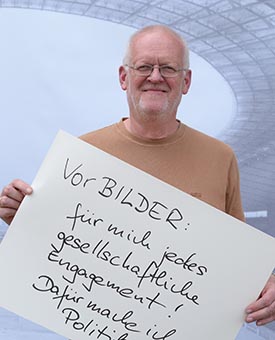 Vor BILDER:
für mich jedes
gesellschaftliche
Engagement!
Dafür mache ich
Politik